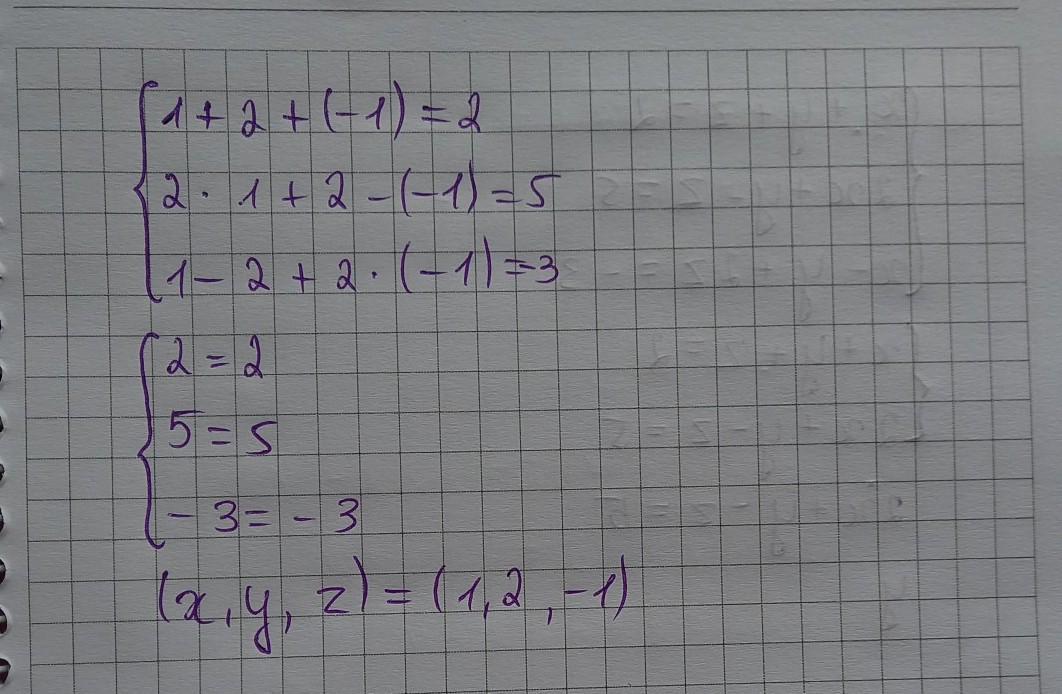 1 + 2 + (-1) = 2
2 · 1 + 2 - (-1) = 5
1 - 2 + 2 · (-1) = -3
2 = 2
5 = 5
- 3 = - 3
(x, y, z) = (1, 2, -1)